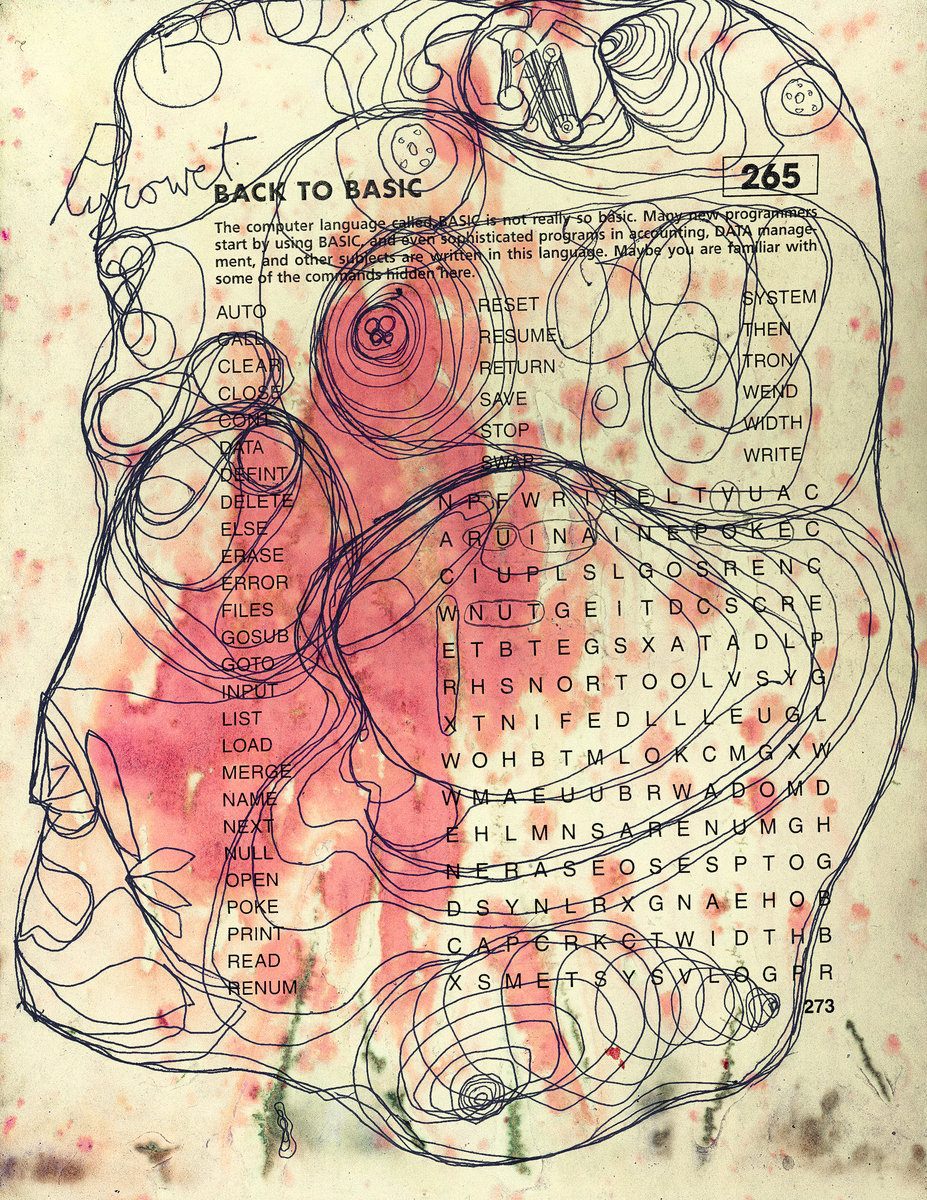 BACK TO BASIC
265
The computer language called BASIC is not really so basic. Many new programmers
start by using BASIC, and even sophisticated programs in accounting, DATA manage-
ment, and other subjects are written in this language. Maybe you are familiar with
some of the commands hidden here.
AUTO
CALL
CLEAR
CLOSE
CONT
DATA
DEFINT
DELETE
ELSE
ERASE
ERROR
FILES
GOSUB
GOTO
INPUT
LIST
LOAD
MERGE
NAME
NEXT
NULL
OPEN
POKE
PRINT
READ
RENUM
RESET
RESUME
RETURN
SAVE
STOP
SWAP
SYSTEM
THEN
TRON
WEND
WIDTH
WRITE
N P F W R I T E L T V U A C
A R U I N A I N E P O K E C
C I U P L S L G O S R E N C
W N U T G E I T D C S C R E
E T B T E G S X A T A D L P
R H S N O R T O O L V S Y G
X T N I F E D L L L E U G L
W O H B T M L O K C M G X W
W M A E U U B R W A D O M D
E H L M N S A R E N U M G H
N E R A S E O S E S P T O G
D S Y N L R X G N A E H O B
C A P C R K C T W I D T H B
X S M E T S Y S V L O G P R
273